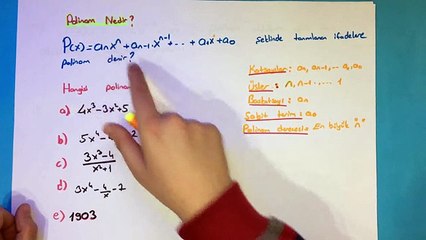 Polinom Nedir?
P(x) = aₙxⁿ + aₙ₋₁·xⁿ⁻¹ + ... + a₁x + a₀ şeklinde tanımlanan ifadelere
polinom denir?
Hangisi polinom
a) 4x³-3x²+5
b) 5x⁴-
c) (3x³-4)/(x²+1)
d) 3x⁴-4/x-2
e) 1903
Katsayılar: aₙ, aₙ₋₁, ..., a₁, a₀
Üsler: n, n-1, ... 1
Başkatsayı: aₙ
Sabit terim: a₀
Polinom derecesi: En büyük "n"